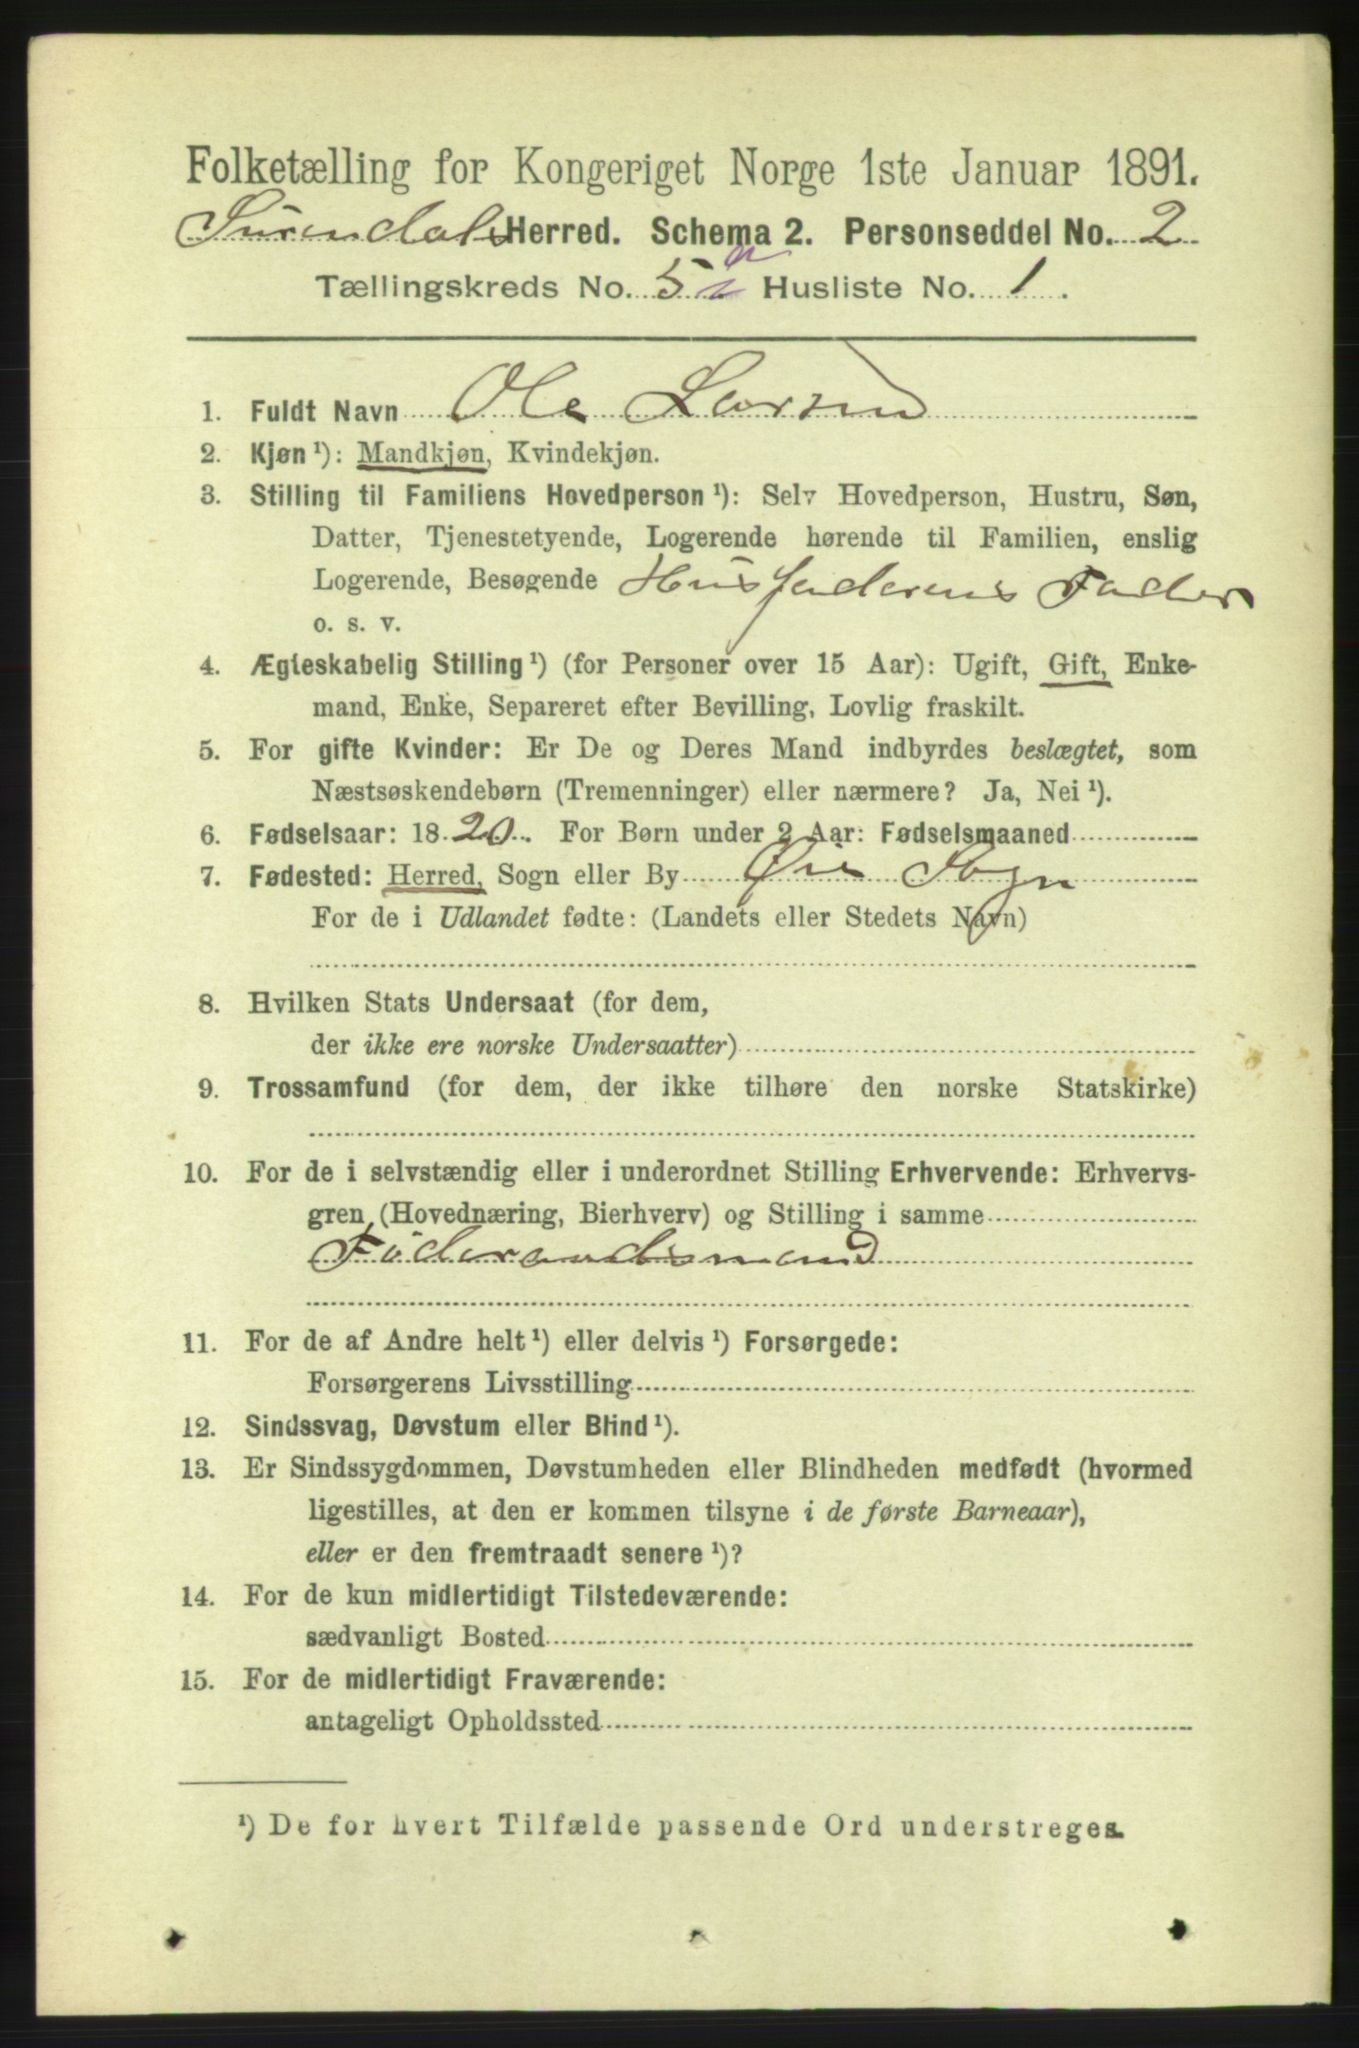 Folketælling for Kongeriget Norge 1ste Januar 1891.
Surendals Herred. Schema 2. Personseddel No. 2
Tællingskreds No. 5 a Husliste No. 1.
1. Fuldt Navn Ole Larsen
2. Kjøn ¹): Mandkjøn, Kvindekjøn.
3. Stilling til Familiens Hovedperson ¹): Selv Hovedperson, Hustru, Søn,
Datter, Tjenestetyende, Logerende hørende til Familien, enslig
Logerende, Besøgende Husfaderens Fader
o. s. v.
4. Ægteskabelig Stilling ¹) (for Personer over 15 Aar): Ugift, Gift, Enke-
mand, Enke, Separeret efter Bevilling, Lovlig fraskilt.
5. For gifte Kvinder: Er De og Deres Mand indbyrdes beslægtet, som
Næstsøskendebørn (Tremenninger) eller nærmere? Ja, Nei ¹).
6. Fødselsaar: 1820. For Børn under 2 Aar: Fødselsmaaned
7. Fødested: Herred, Sogn eller By Øie Sogn
For de i Udlandet fødte: (Landets eller Stedets Navn)
8. Hvilken Stats Undersaat (for dem,
der ikke ere norske Undersaatter)
9. Trossamfund (for dem, der ikke tilhøre den norske Statskirke)
10. For de i selvstændig eller i underordnet Stilling Erhvervende: Erhvervs-
gren (Hovednæring, Bierhverv) og Stilling i samme
Föderaadsmand
11. For de af Andre helt ¹) eller delvis ¹) Forsørgede:
Forsørgerens Livsstilling
12. Sindssvag, Døvstum eller Blind ¹).
13. Er Sindssygdommen, Døvstumheden eller Blindheden medfødt (hvormed
ligestilles, at den er kommen tilsyne i de første Barneaar),
eller er den fremtraadt senere ¹)?
14. For de kun midlertidigt Tilstedeværende:
sædvanligt Bosted
15. For de midlertidigt Fraværende:
antageligt Opholdssted
¹) De for hvert Tilfælde passende Ord understreges.